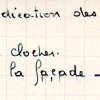 dication des
clocher.
la façade -